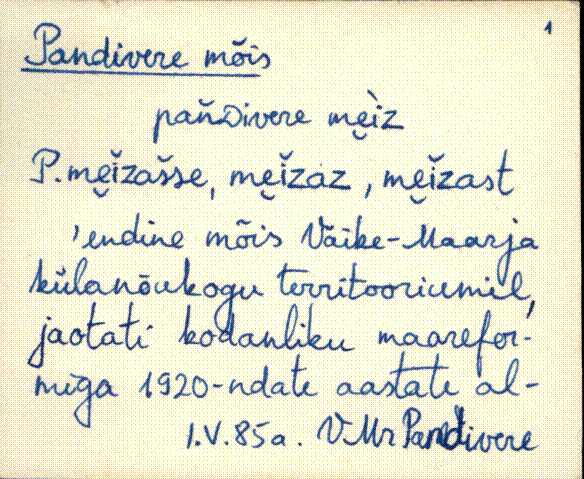 1
Pandivere mõis
pan̆Divere me̮ìz
P. me̮ĭzašse, me̮ĭzaz, me̮ĭzast
'endine mõis Väike-Maarja
külanõukogu territooriumil,
jaotati kodanliku maarefor-
miga 1920-ndate aastate al-
1.V.85a. VMr Pandivere